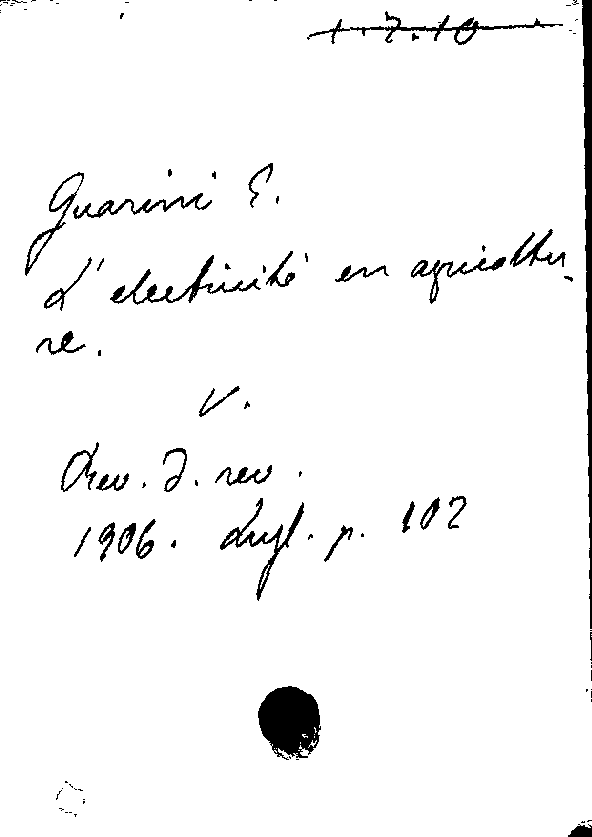 1.7.10
Guarini E.
L'electricité en agricultu-
re.
V.
Rev. d. rev.
1906. Lugl. p. 102